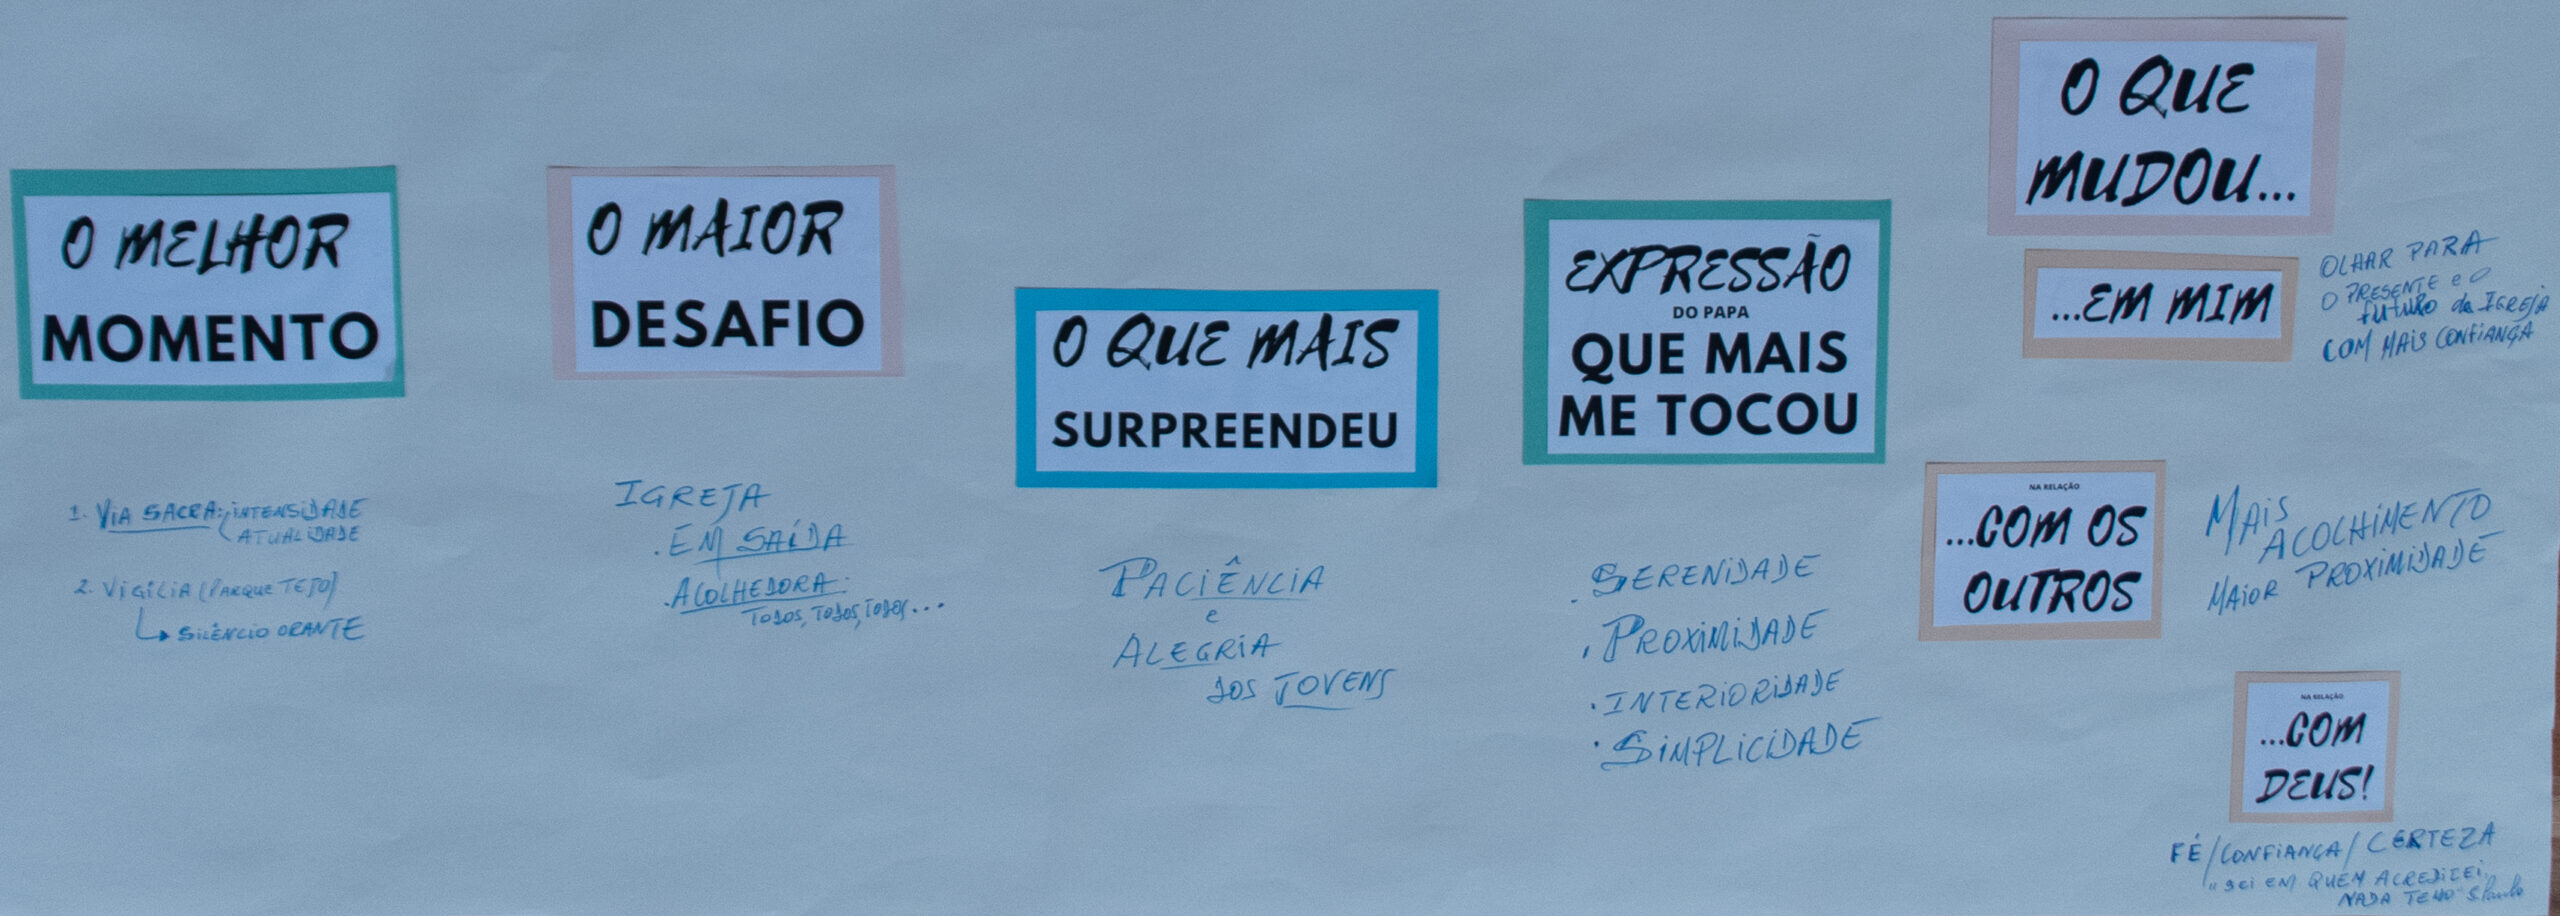 O MELHOR
MOMENTO
1. VIA SACRA: INTENSIDADE
ATUALIDADE
2. VIGÍLIA (PARQUE TEJO)
SILÊNCIO ORANTE
O MAIOR
DESAFIO
IGREJA
. EM SAÍDA
. ACOLHEDORA:
TODOS, TODOS, TODOS, ...
O QUE MAIS
SURPREENDEU
PACIÊNCIA
e
ALEGRIA
DOS JOVENS
EXPRESSÃO
DO PAPA
QUE MAIS
ME TOCOU
. SERENIDADE
. PROXIMIDADE
. INTERIORIDADE
. SIMPLICIDADE
O QUE
MUDOU...
...EM MIM
OLHAR PARA
O PRESENTE e o
futuro da IGREJA
COM MAIS CONFIANÇA
NA RELAÇÃO
...COM OS
OUTROS
MAIS
ACOLHIMENTO
MAIOR PROXIMIDADE
NA RELAÇÃO
...COM
DEUS!
FÉ / CONFIANÇA / CERTEZA
"SEI EM QUEM ACREDITEI,
NADA TEMO" S. Paulo